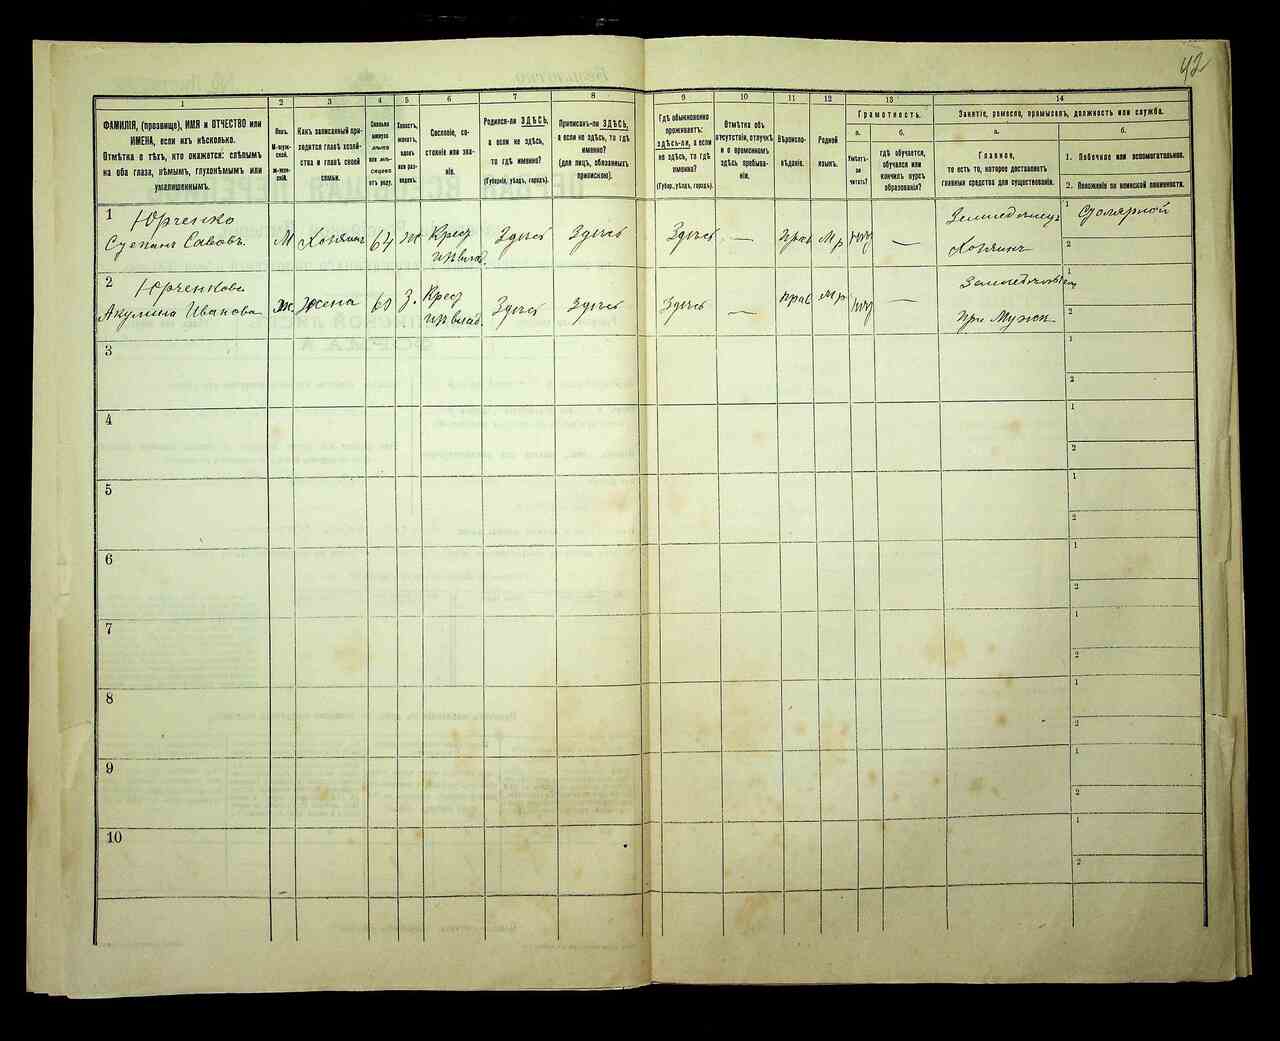 42
1 2 3 4 5 6 7 8 9 10 11 12 13 14
ФАМИЛІЯ, (прозвище), ИМЯ и ОТЧЕСТВО или
ИМЕНА, если ихъ нѣсколько.
Отмѣтка о тѣхъ, кто окажется: слѣпымъ
на оба глаза, нѣмымъ, глухонѣмымъ или
умалишеннымъ.
Полъ.
М-муж-
ской.
ж-жен-
скій.
Какъ записанный при-
ходится главѣ хозяй-
ства и главѣ своей
семьи.
Сколько
минуло
лѣтъ
отъ роду.
Холостъ,
женатъ,
вдовъ
или раз-
веденъ.
Сословіе, со-
стояніе или зва-
ніе.
Родился-ли ЗДѢСЬ,
а если не здѣсь,
то гдѣ именно?
(Губернія, уѣздъ, городъ).
Приписанъ-ли ЗДѢСЬ,
а если не здѣсь, то гдѣ
именно?
(для лицъ, обязанныхъ
припискою).
Гдѣ обыкновенно
проживаетъ:
здѣсь-ли, а если
не здѣсь, то гдѣ
именно?
(Губер., уѣздъ, городъ).
Отмѣтка объ
отсутствіи, отлучкѣ
и о временномъ
здѣсь пребыва-
ніи.
Вѣроиспо-
вѣданіе.
Родной
языкъ.
Грамотность.
а. б.
Умѣетъ-
ли
читать?
гдѣ обучается,
обучался или
кончилъ курсъ
образованія?
Занятіе, ремесло, промыселъ, должность или служба.
а. б.
Главное,
то есть то, которое доставляетъ
главныя средства для существованія.
1. Побочное или вспомогательное.
2. Положеніе по воинской повинности.
1 Юрченко
Степанъ Савовъ. М Хозяинъ 64 ж Крест Здѣсь Здѣсь Здѣсь — Прав М.р нѣт —
Земледѣлецъ
Хозяинъ
1 Столярной
2
2 Юрченкова
Акулина Иванова ж жена 60 З. Крест Здѣсь Здѣсь Здѣсь — прав м.р нѣт —
При Мужѣ
1
2
3
1
2
4
1
2
5
1
2
6
1
2
7
1
2
8
1
2
9
1
2
10
1
2